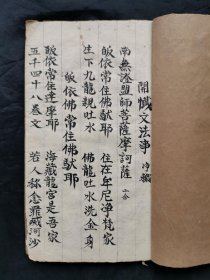 開懺文法事
南無澄盟師菩薩摩訶薩
皈依常住佛馱耶 住在牟尼净梵家
生下九龍親吐水 佛龍吐水洗金身
皈依佛常住佛馱耶
皈依常住達摩耶 海藏龍宮是吾家
五千四十八卷文 若人称念罪滅河沙